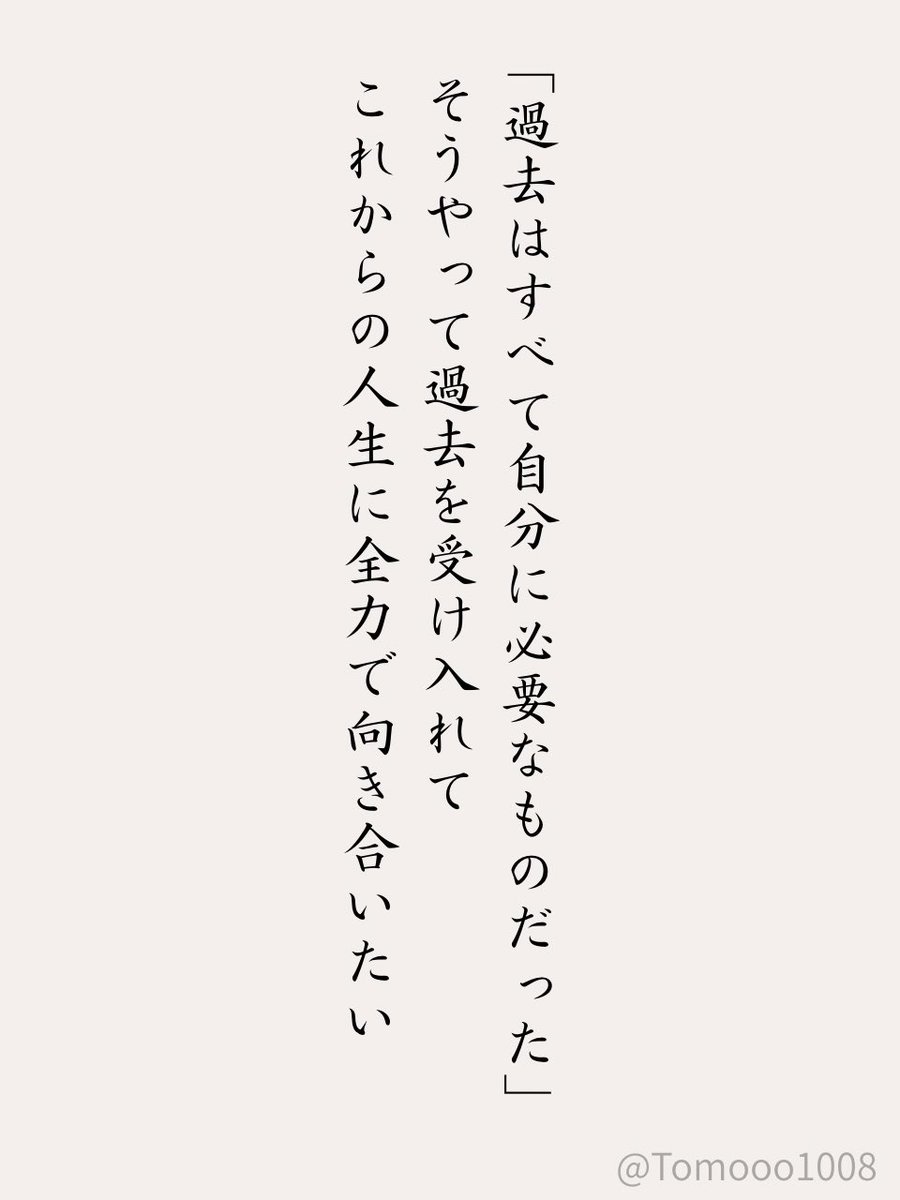 「過去はすべて自分に必要なものだった」
そうやって過去を受け入れて
これからの人生に全力で向き合いたい
@Tomooo1008